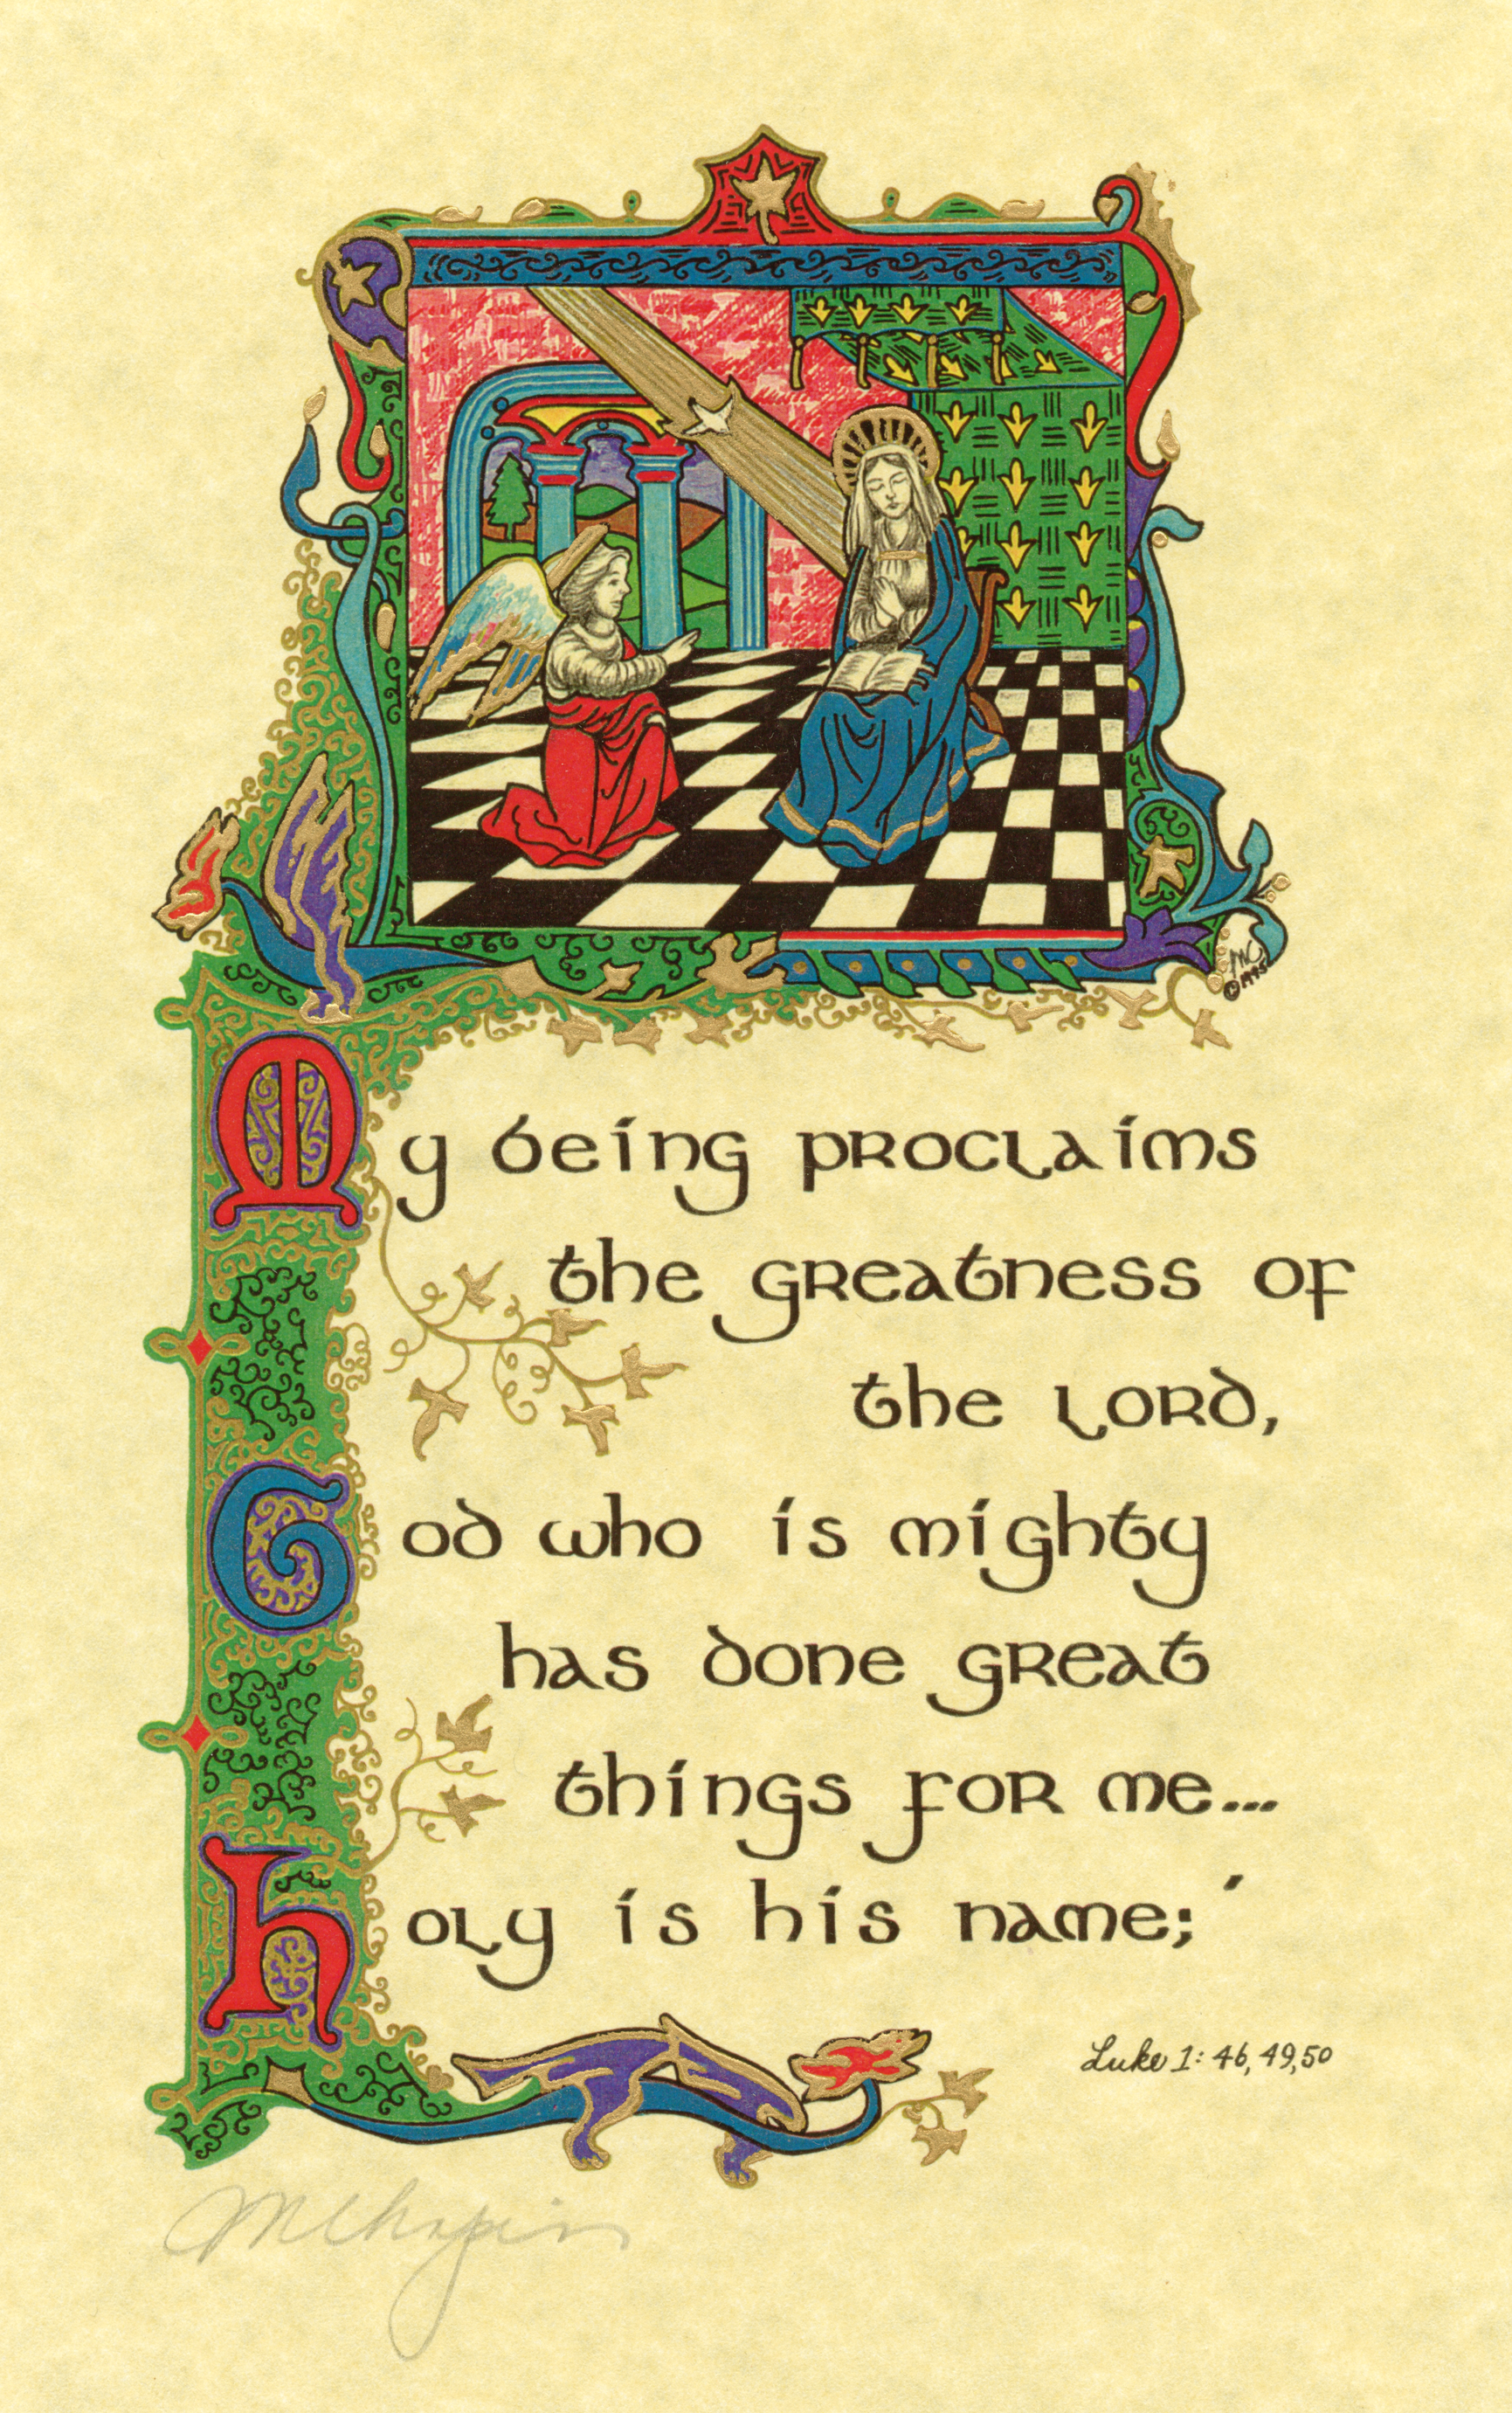 MC
©1995
My being proclaims
the greatness of
the Lord,
God who is mighty
has done great
things for me...
holy is his name;'
Luke 1: 46, 49, 50
MChapin